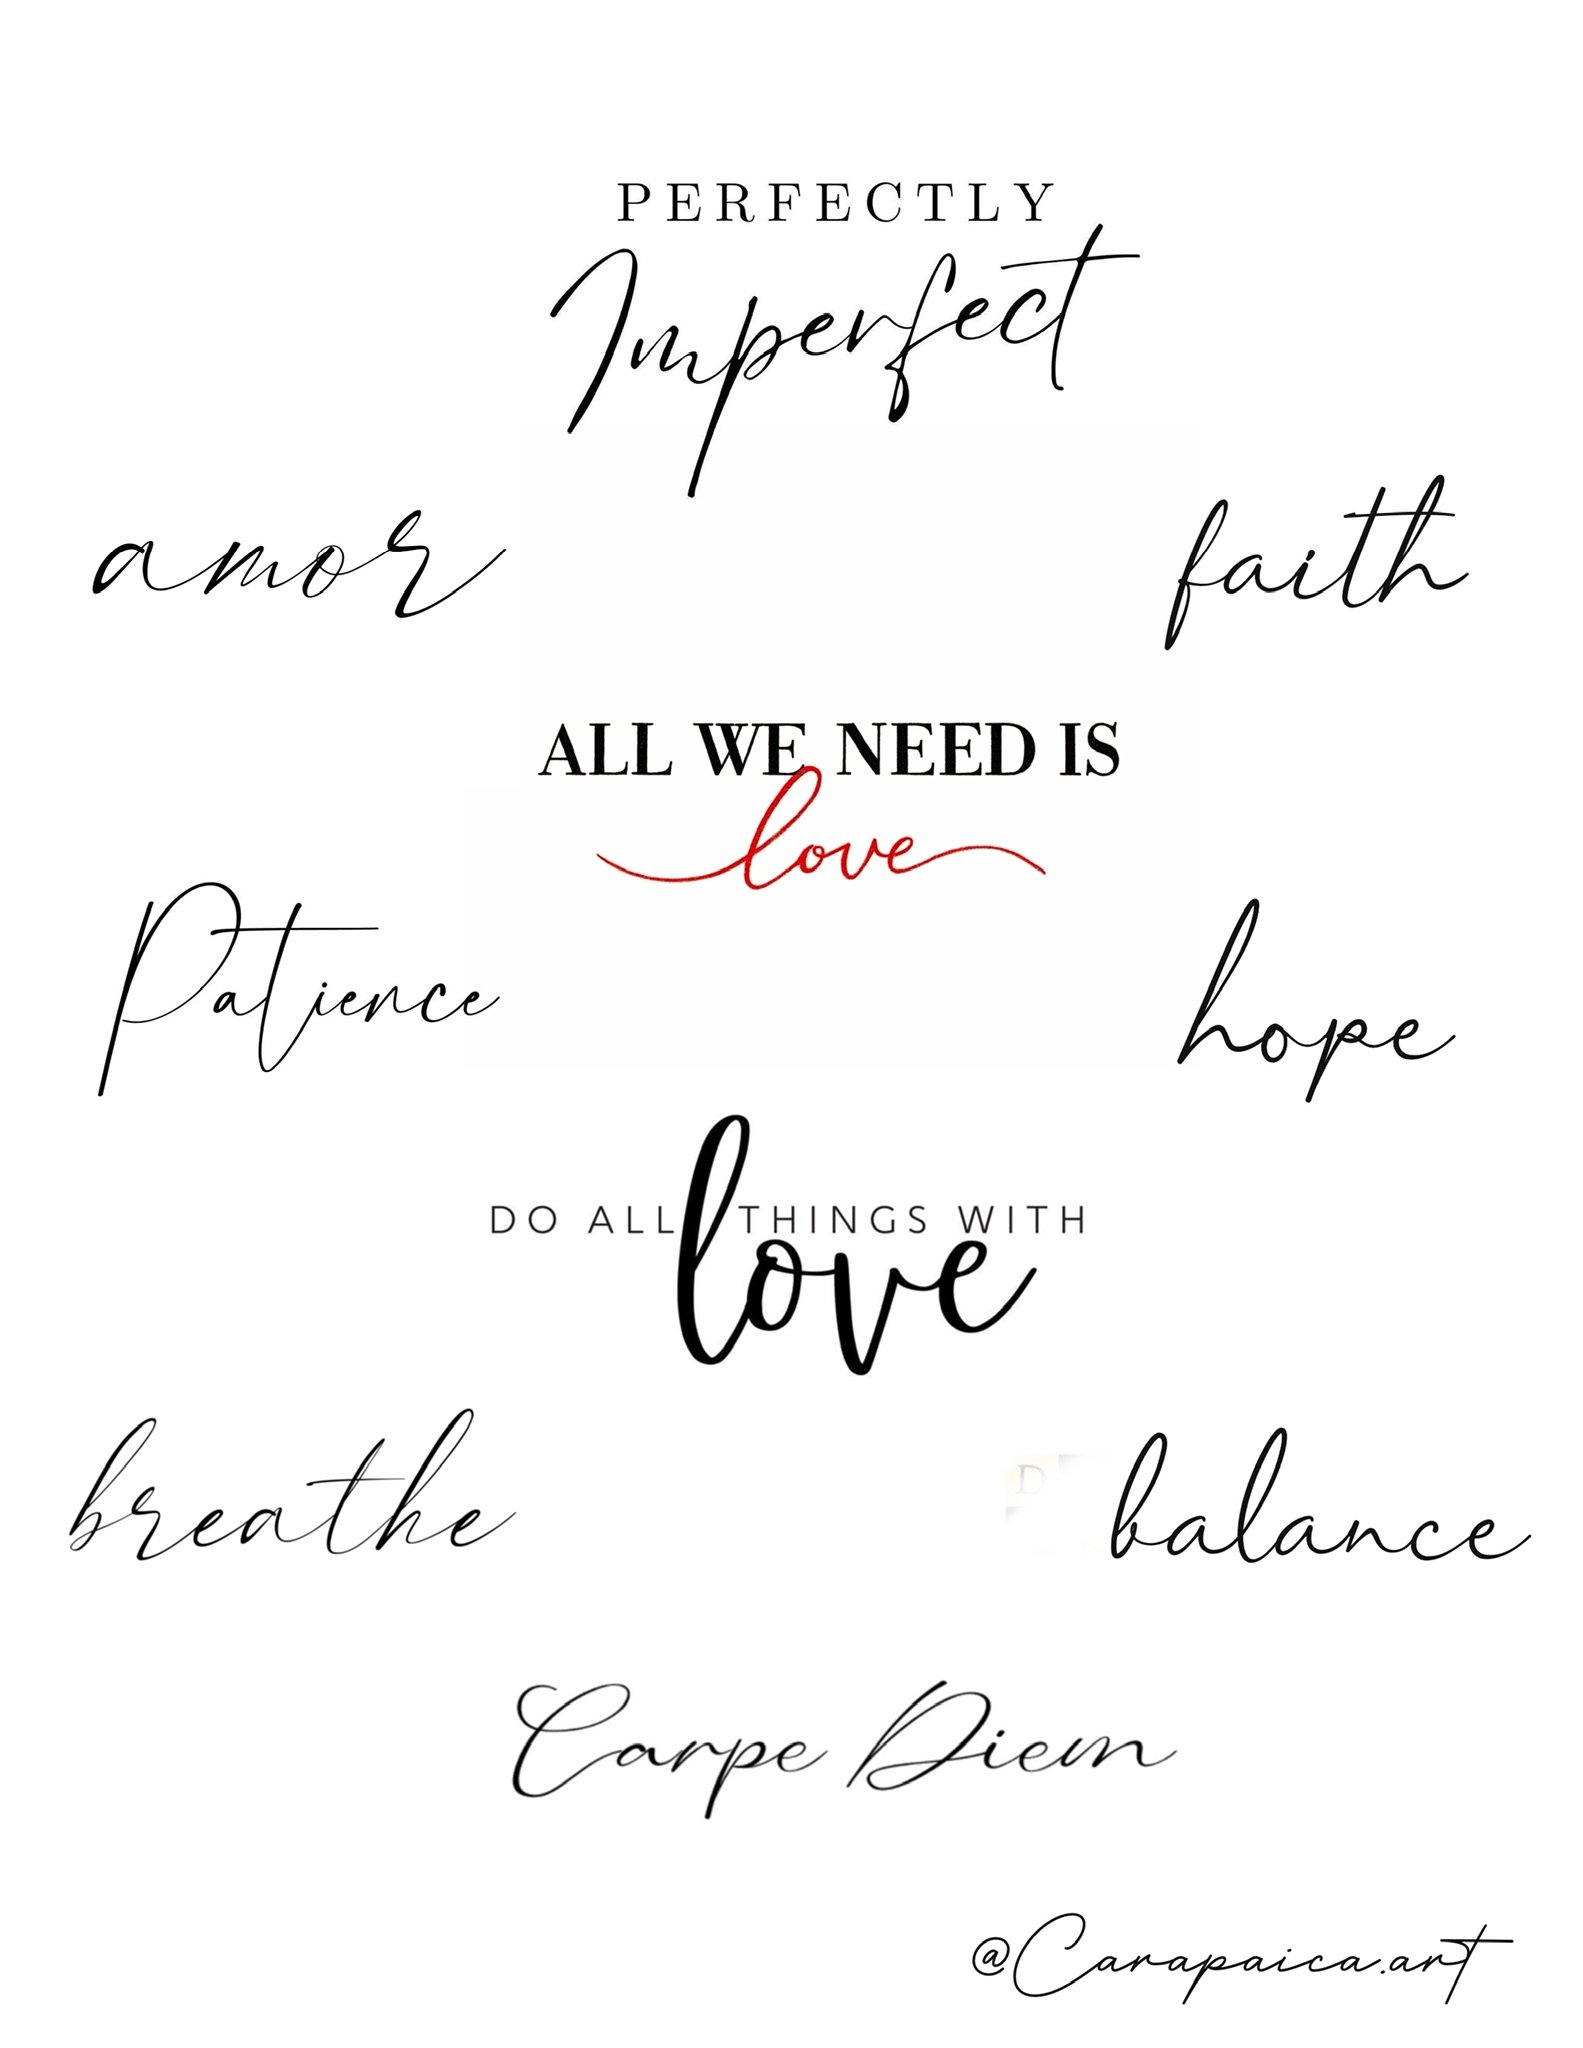 PERFECTLY
Imperfect
amor
faith
ALL WE NEED IS
love
Patience
hope
DO ALL THINGS WITH
love
breathe
D
balance
Carpe Diem
@Carapaica.art